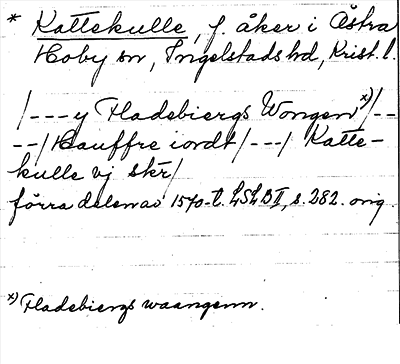 * Kattekulle, f. åker i Östra
Hoby sn, Ingelstads hd, Krist. l.
/---y Fladebiergs Wongen x)/--
--/Hauffre iordt/---/ Katte-
kulle vj skr/
förra delen av 1570-t. LSLB II, s. 282. orig.
x) Fladebiergs waangenn.